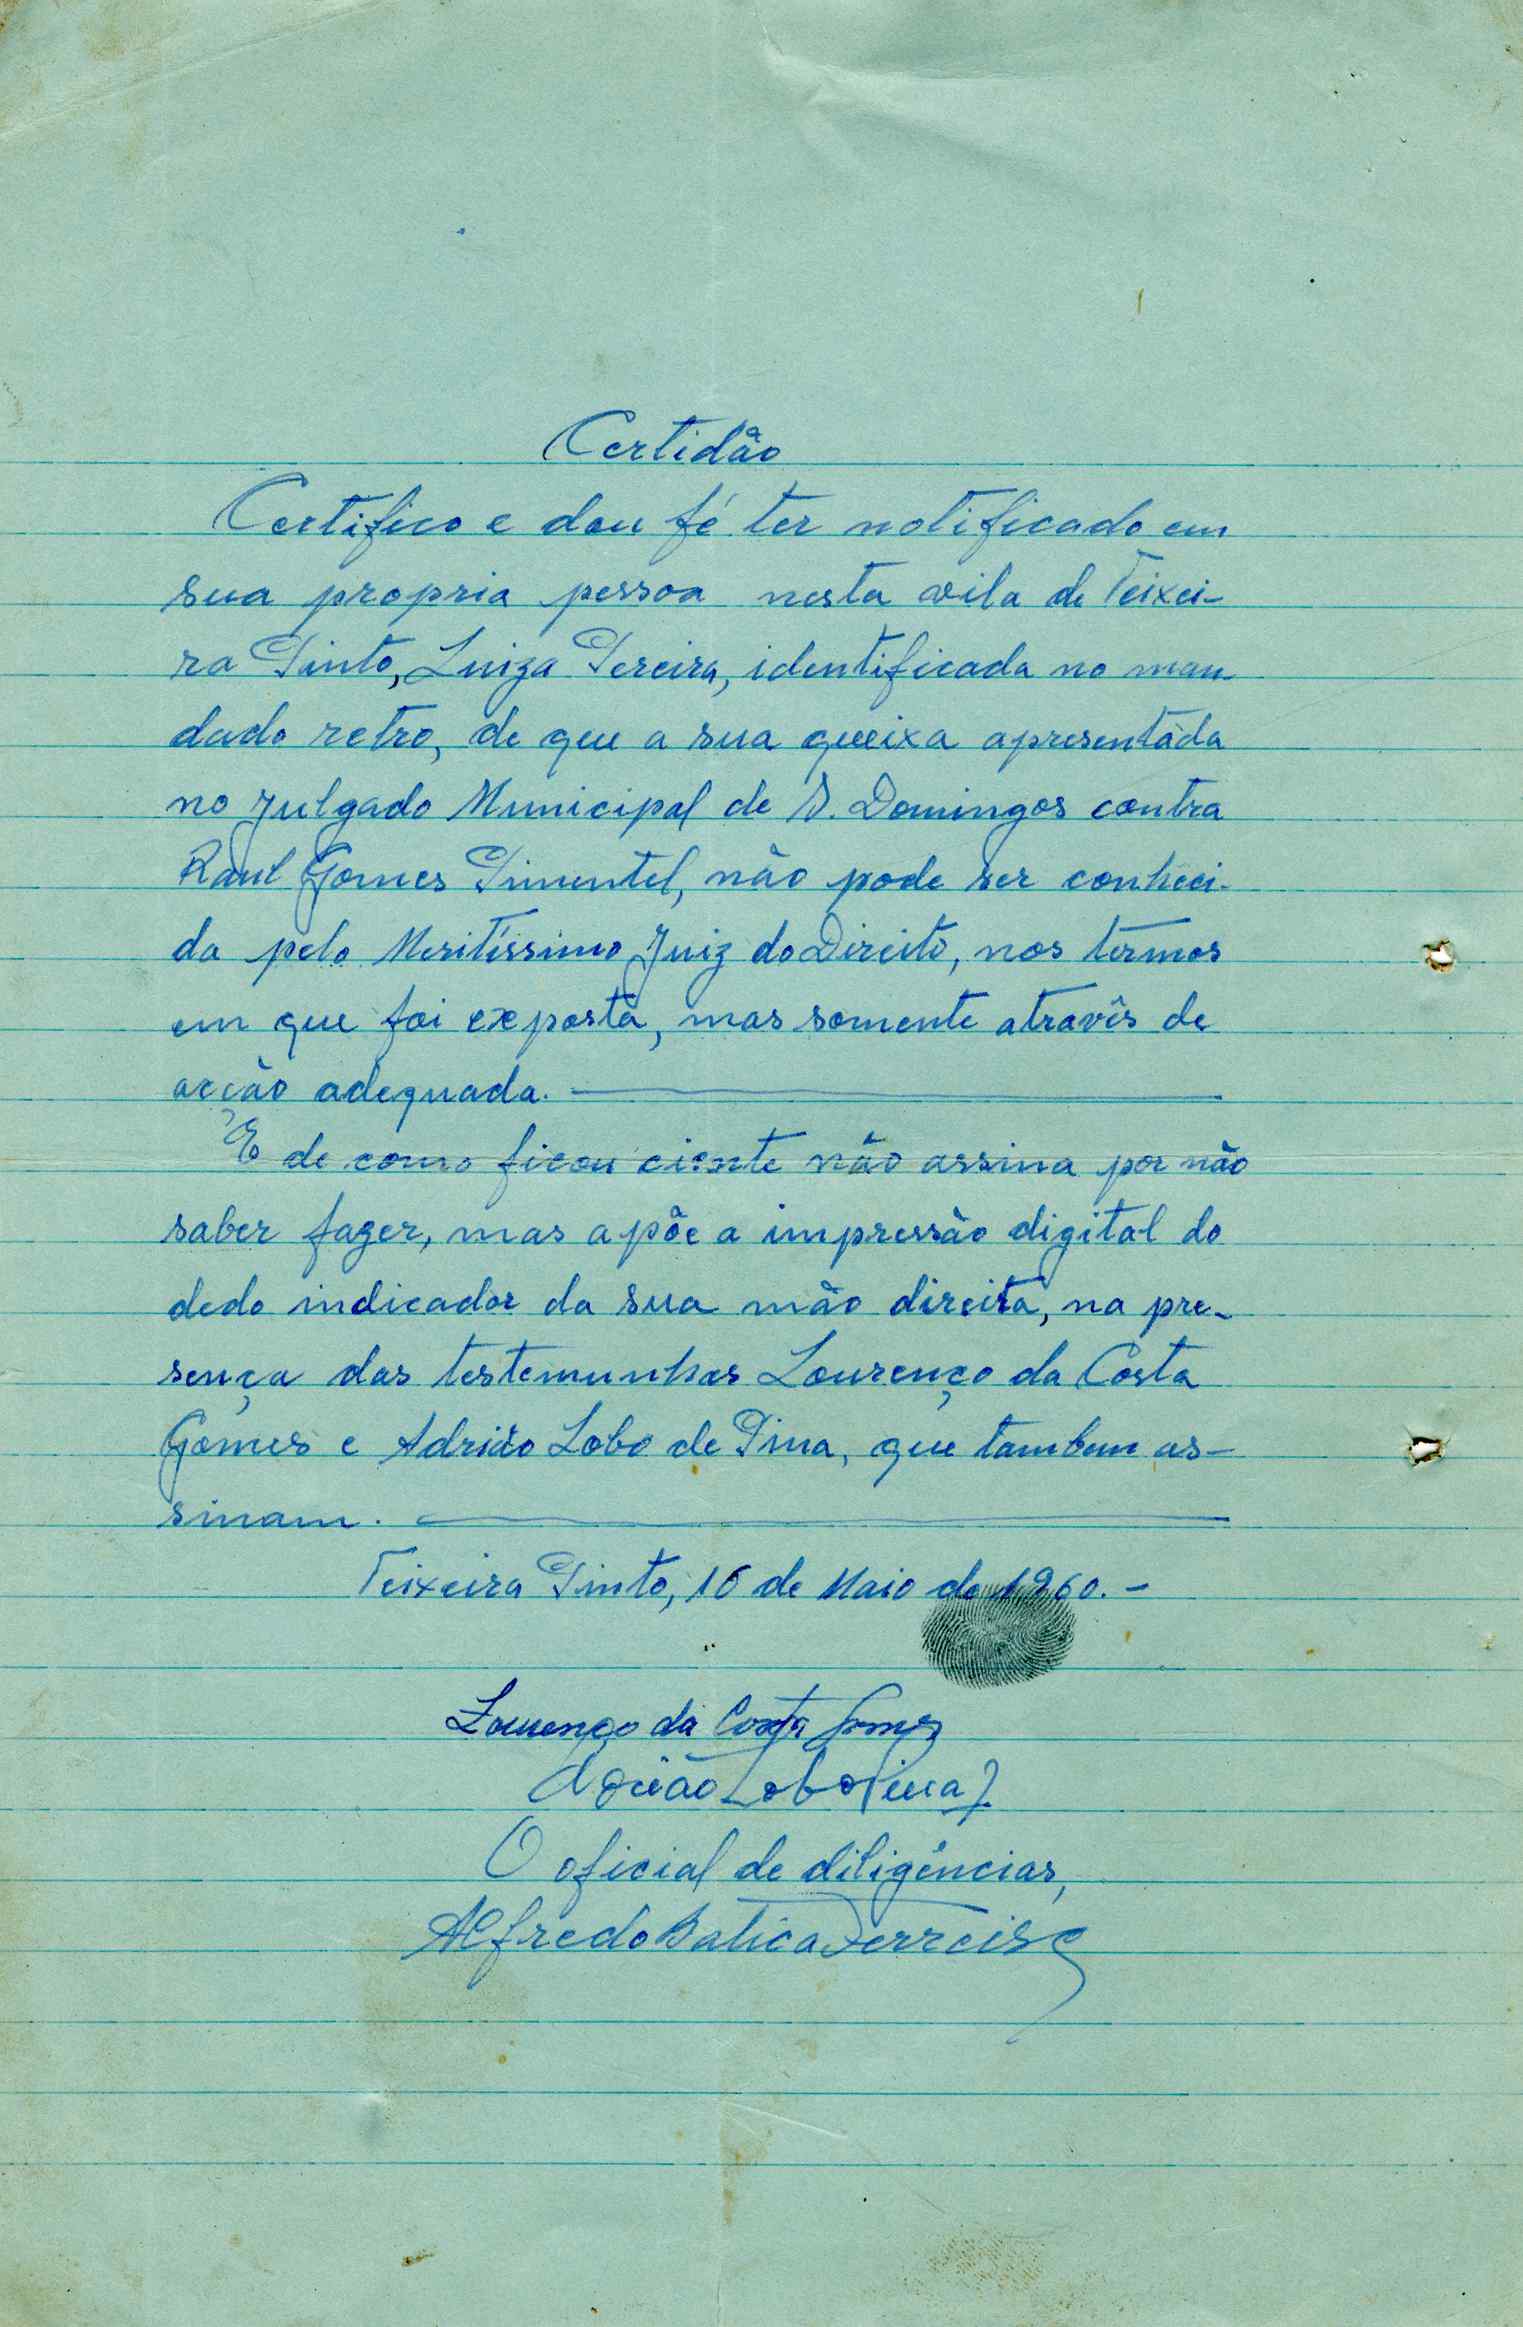 Certidão
Certifico e dou fé ter notificado em
sua propria pessoa nesta vila de Teixei-
ra Pinto, Luiza Pereira, identificada no man-
dado retro, de que a sua queixa apresentada
no Julgado Municipal de S. Domingos contra
Raul Gomes Pimentel, não pode ser conheci-
da pelo Meritíssimo Juiz do Direito, nos termos
em que foi exposta, mas somente através de
acção adequada.
E de como ficou ciente não assina por não
saber fazer, mas apõe a impressão digital do
dedo indicador da sua mão direita, na pre-
sença das testemunhas Lourenço da Costa
Gomes e Adrião Lobo de Pina, que tambem as-
sinam.
Teixeira Pinto, 16 de Maio de 1960.-
Lourenço da Costa Gomes
Adrião Lobo Pina
O oficial de diligências,
Alfredo Batica Ferreira